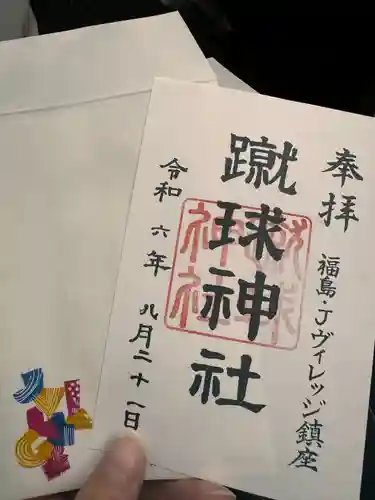 奉拝
福島・Jヴィレッジ鎮座
蹴球神社
令和六年九月二十一日
蹴球
神社